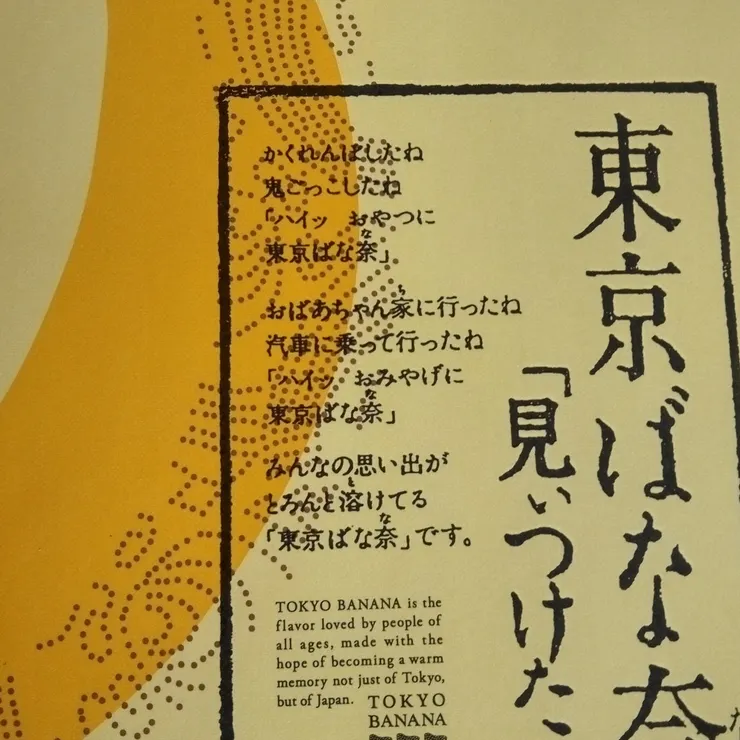 東京ばな奈
「見ぃつけた
かくれんぼしたね
鬼ごっこしたね
「ハイッ おやつに
東京ばな奈」
おばあちゃん家に行ったね
汽車に乗って行ったね
「ハイッ おみやげに
東京ばな奈」
みんなの思い出が
とろんと溶けてる
「東京ばな奈」です。
TOKYO BANANA is the
flavor loved by people of
all ages, made with the
hope of becoming a warm
memory not just of Tokyo,
but of Japan.
TOKYO
BANANA